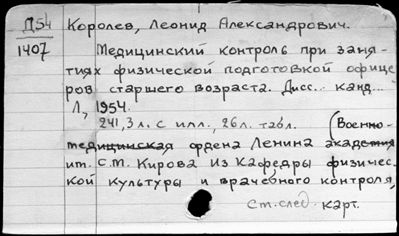 Д54 Королев, Леонид Александрович.
1407 Медицинский контроль при заня-
тиях физической подготовкой офице
ров старшего возраста. Дисс... канд...
Л, 1954.
241,3 л. с илл., 26 л. табл. (Военно-
медицинская ордена Ленина академия
им. С.М. Кирова Из Кафедры физичес.
кой культуры и врачебного контроля,
См. след. карт.